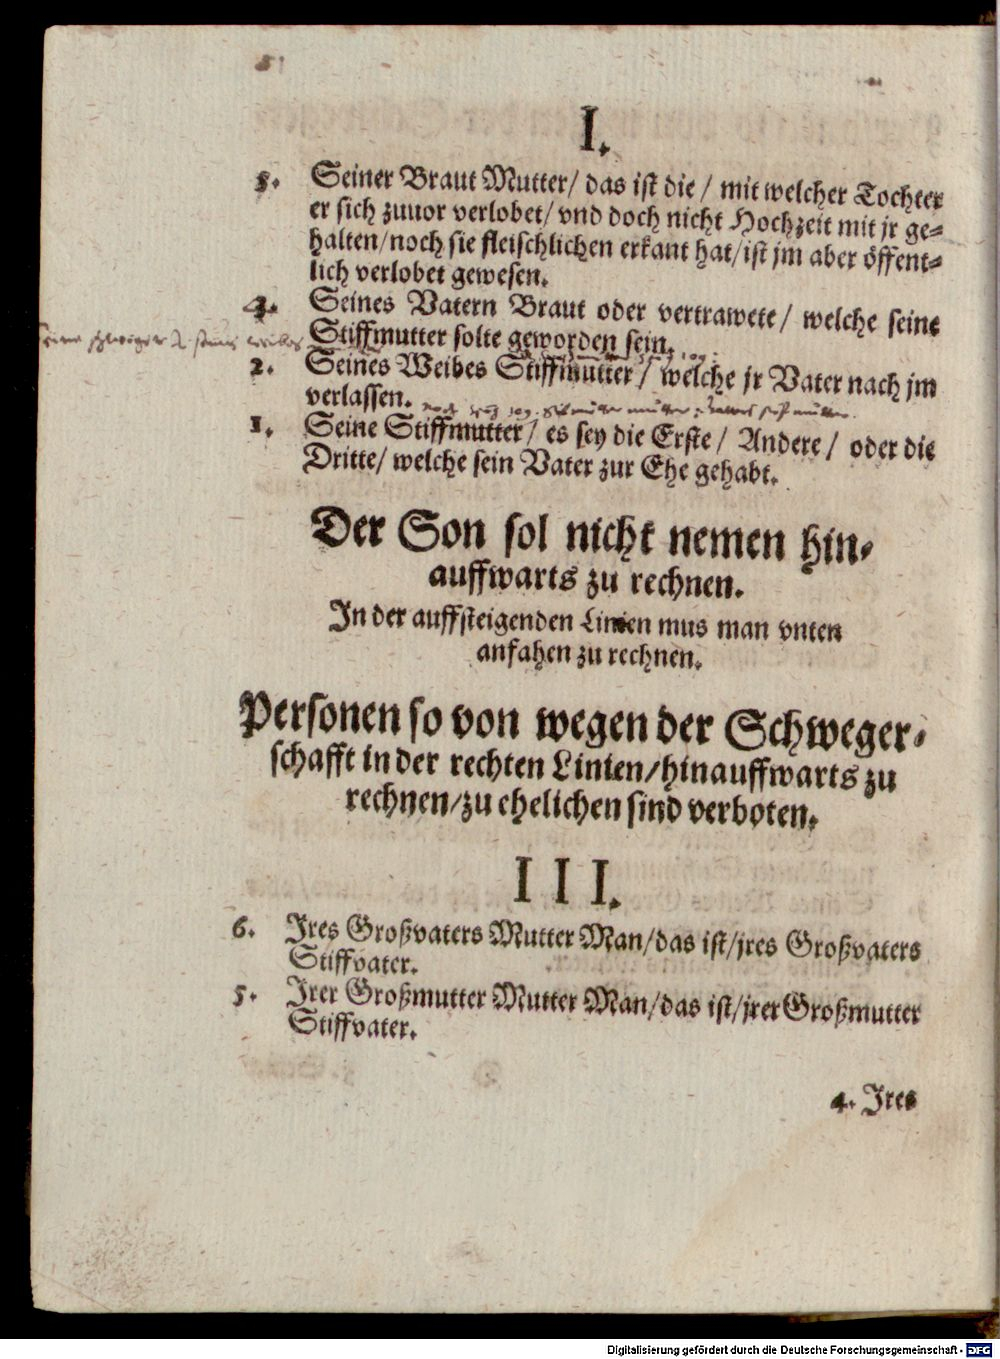 I.
5. Seiner Braut Mutter/ das ist die / mit welcher Tochter
er sich zuuor verlobet/ vnd doch nicht Hochzeit mit jr ge-
halten/ noch sie fleischlichen erkant hat/ ist jm aber öffent-
lich verlobet gewesen.
4. Seines Vatern Braut oder vertrawete/ welche seine
Stiffmutter solte geworden sein.
2. Seines Weibes Stiffmutter/ welche jr Vater nach jm
verlassen.
1. Seine Stiffmutter/ es sey die Erste/ Andere/ oder die
Dritte/ welche sein Vater zur Ehe gehabt.
Der Son sol nicht nemen hin-
auffwarts zu rechnen.
In der auffsteigenden Linien mus man vnten
anfahen zu rechnen.
Personen so von wegen der Schweger-
schafft in der rechten Linien/hinauffwarts zu
rechnen/zu ehelichen sind verboten.
III.
6. Jres Großvaters Mutter Man/das ist/jres Großvaters
Stiffvater.
5. Jrer Großmutter Mutter Man/das ist/jrer Großmutter
Stiffvater.
4. Jres
Digitalisierung gefördert durch die Deutsche Forschungsgemeinschaft - DFG